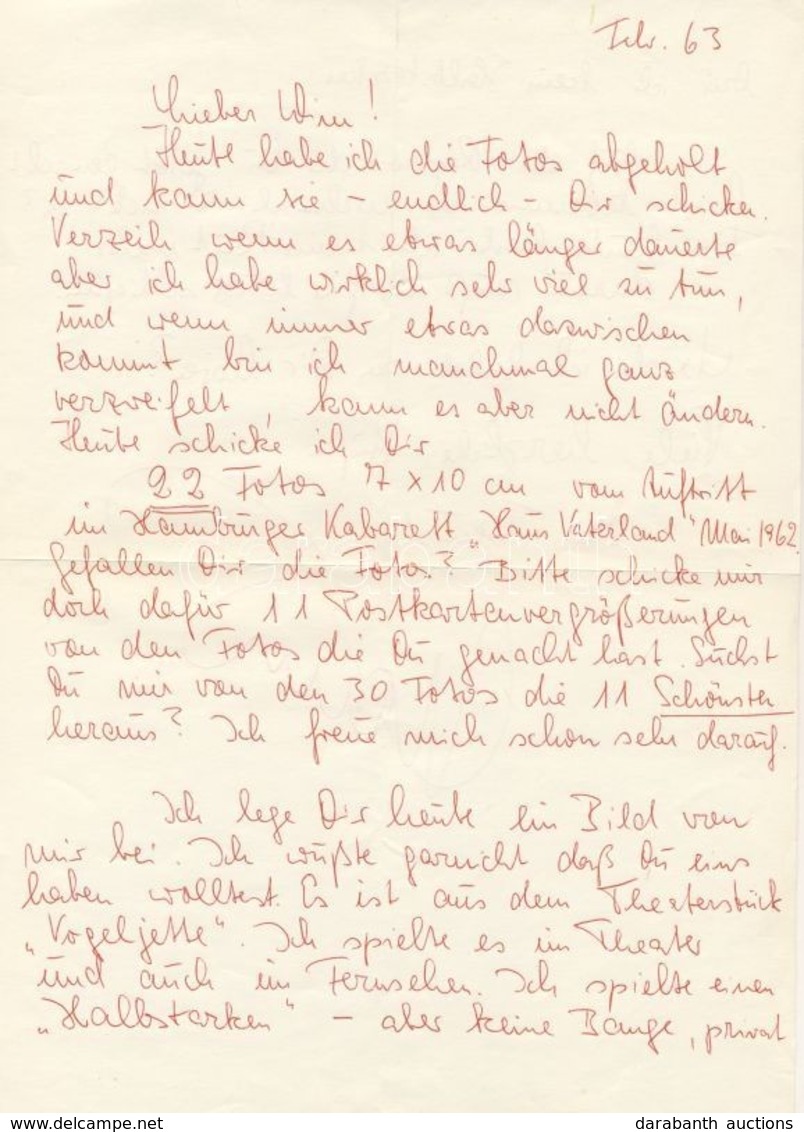 Febr. 63
Lieber Wim!
Heute habe ich die Fotos abgeholt
und kann sie – endlich – Dir schicken.
Verzeih wenn es etwas länger dauerte
aber ich habe wirklich sehr viel zu tun,
und wenn immer etwas dazwischen
kommt bin ich manchmal ganz
verzweifelt, kann es aber nicht ändern.
Heute schicke ich Dir
22 Fotos 7 x 10 cm vom Auftritt
im Hamburger Kabarett „Haus Vaterland" Mai 1962.
Gefallen Dir die Fotos? Bitte schicke mir
doch dafür 11 Postkartenvergrößerungen
von den Fotos die Du gemacht hast. Suchst
Du mir von den 30 Fotos die 11 Schönsten
heraus? Ich freue mich schon sehr darauf.
Ich lege Dir heute ein Bild von
mir bei. Ich wußte garnicht daß Du eins
haben wolltest. Es ist aus dem Theaterstück
„Vogeljette". Ich spielte es im Theater
und auch im Fernsehen. Ich spielte einen
„Halbstarken" – aber keine Bange, privat
delcampe.net
darabanth auctions